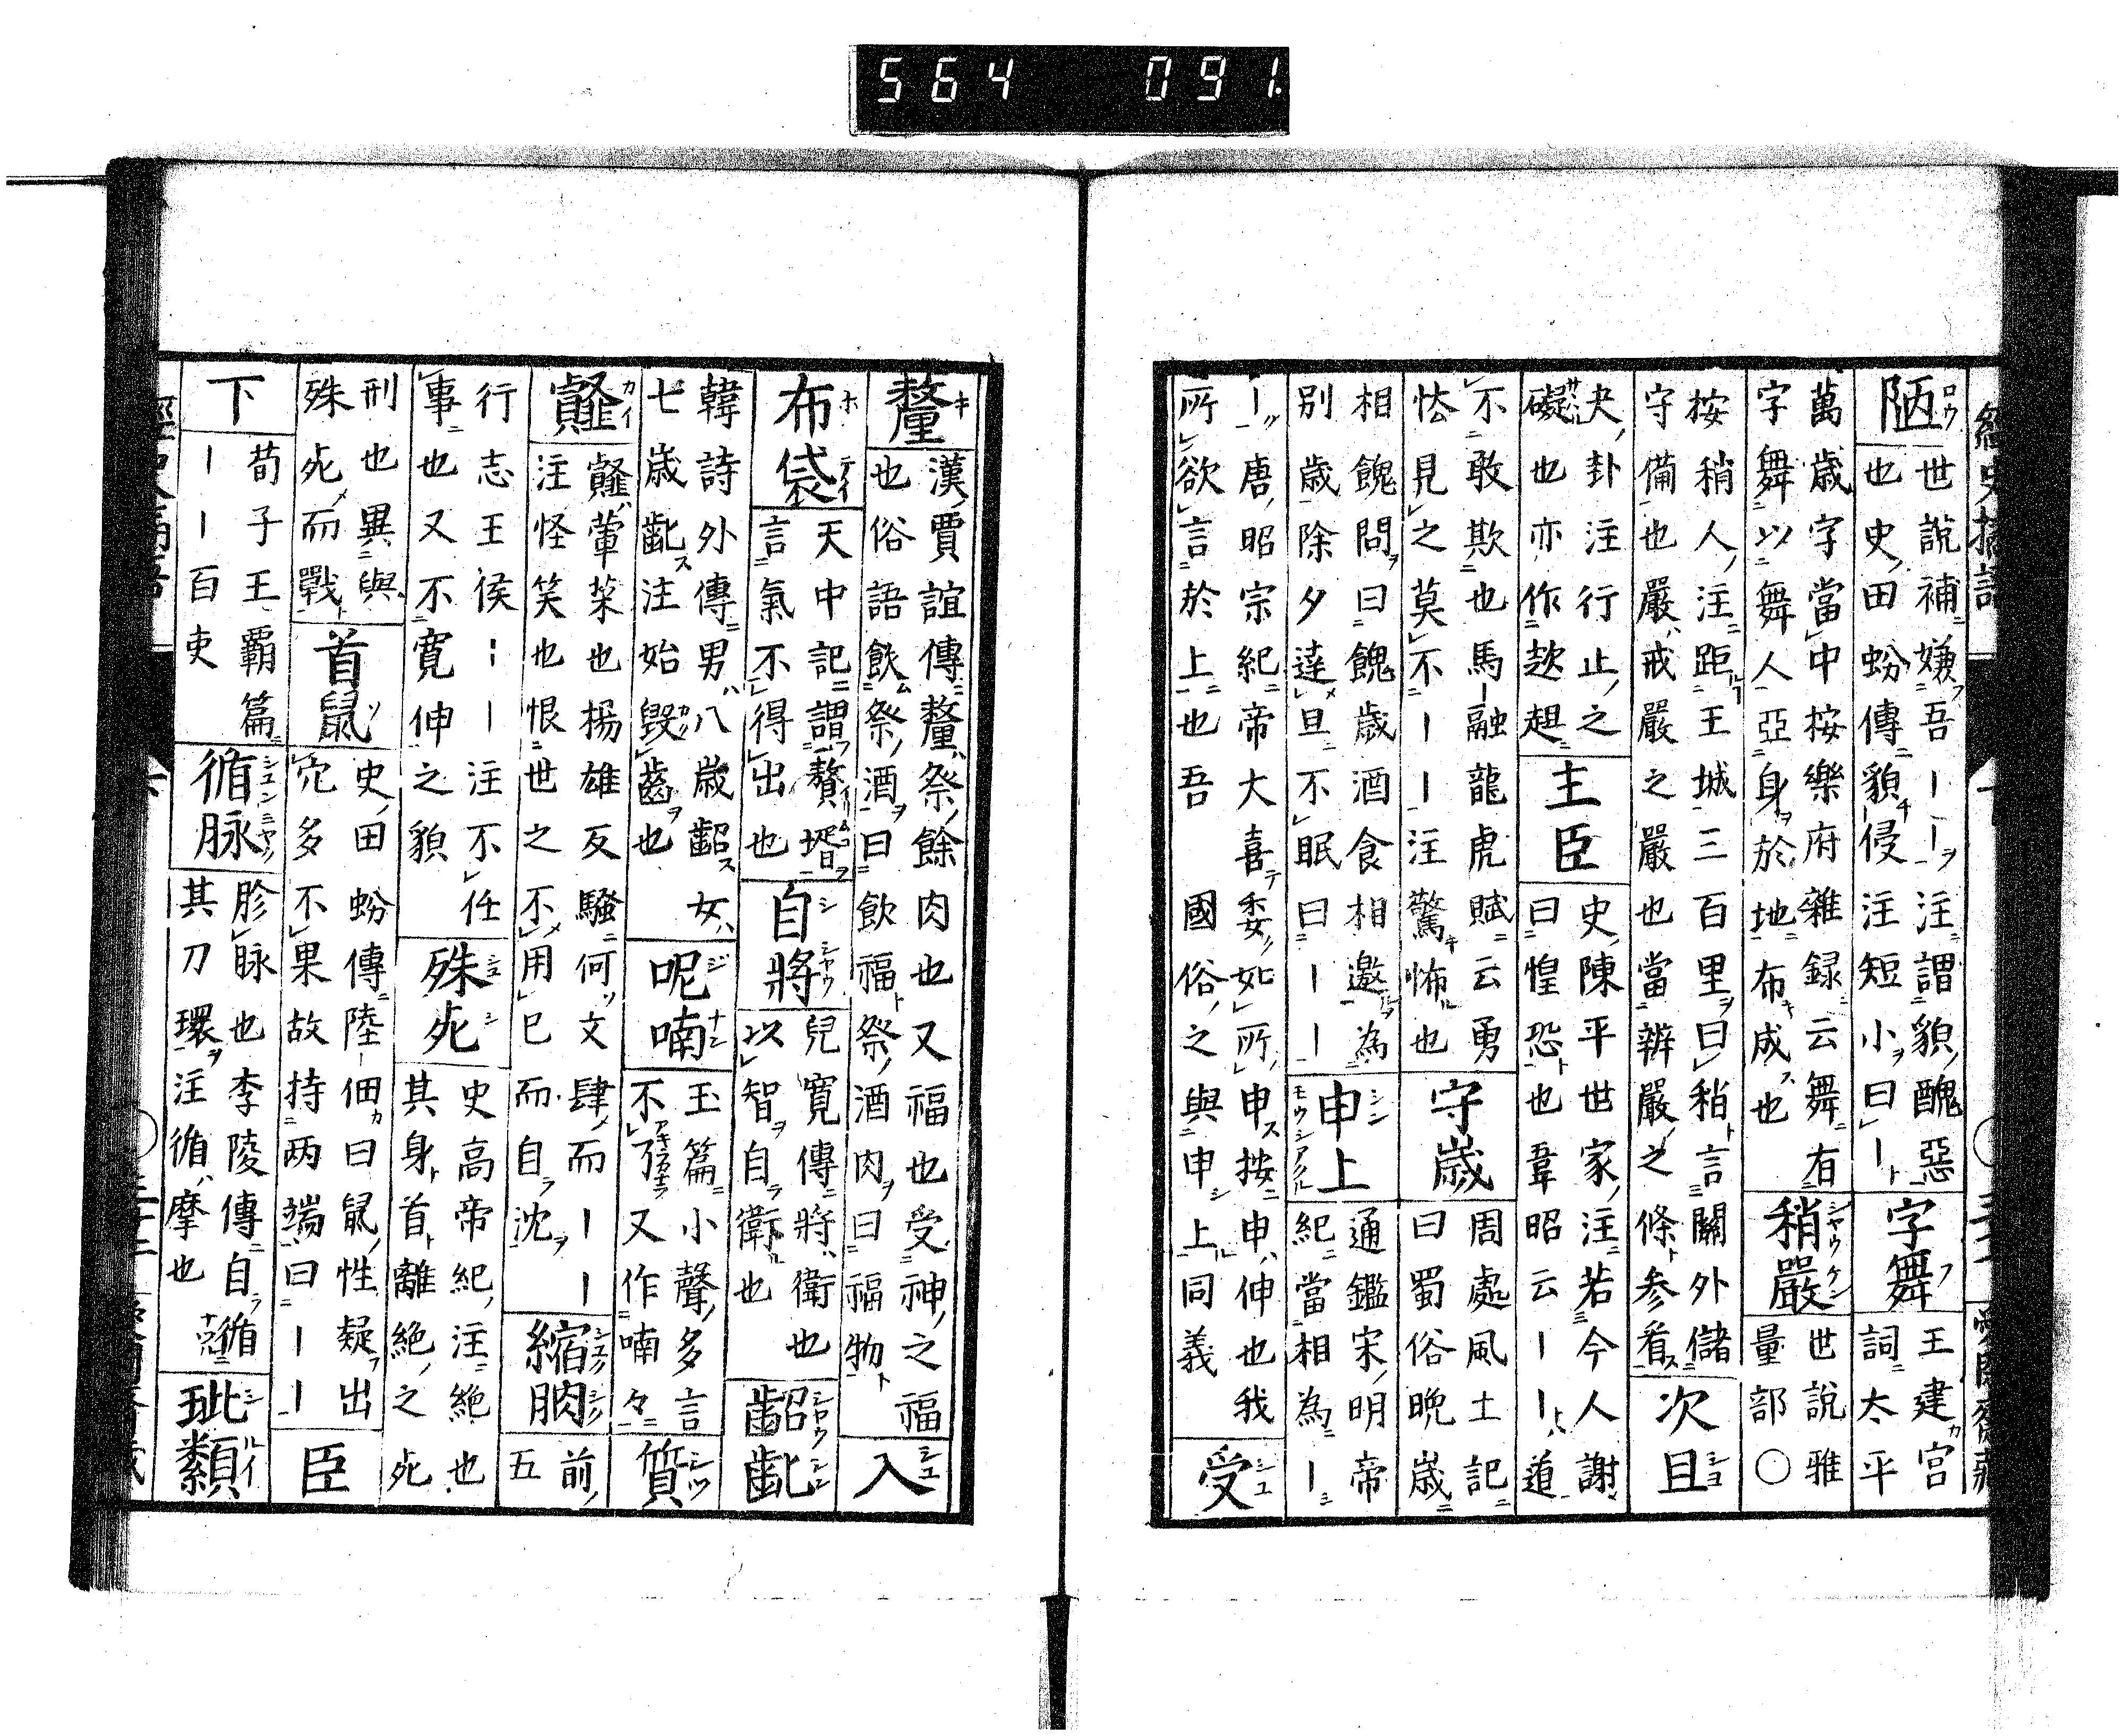 564 091.
陋 世說補嫌吾ーー注謂貌醜惡
也史田蚡傳貌侵注短小曰ー
字舞 王建宮
詞太平
萬歳字當中按樂府雜録云舞有
字舞以舞人亞身於地布成也
稍嚴 世說雅
量部〇
按稍人注距王城三百里曰稍言關外儲
守備也嚴戒嚴之嚴也當辨嚴之條参看
次且
夬卦注行止之
礙也亦作趑趄
主臣 史陳平世家注若今人謝
曰惶恐也韋昭云ーー道
不敢欺也馬融龍虎賦云勇
怯見之莫不ーー注驚怖也
守歳 周處風土記
曰蜀俗晩歳
相餽問曰餽歳酒食相邀為
別歳除夕達旦不眠曰ーー
申上 通鑑宋明帝
紀當相為ー
ー唐昭宗紀帝大喜委如所申按申伸也我
所欲言於上也吾國俗之與申上同義
受
釐 漢賈誼傳釐祭餘肉也又福也受神之福
也俗語飲祭酒曰飲福祭酒肉曰福物
入
布袋 天中記謂贅壻
言氣不得出也
自將 兒寬傳將衛也
以智自衛也
齠齔
韓詩外傳男八歳齠女
七歳齔注始毀齒也
呢喃 玉篇小聲多言
不了又作喃々
質
𩐁 𩐁葷菜也揚雄反騷何文肆而ーー
注怪笑也恨世之不用己而自沈
縮朒 前
五
行志王侯ーー注不任
事也又不寛伸之貌
殊死 史高帝紀注絶也
其身首離絶之死
刑也異與
殊死而戰
首鼠 史田蚡傳陸佃曰鼠性疑出
穴多不果故持两端曰ーー
臣
下 荀子王覇篇
ーーー百吏
循脉 胗脉也李陵傳自循
其刀環注循摩也
玼纇